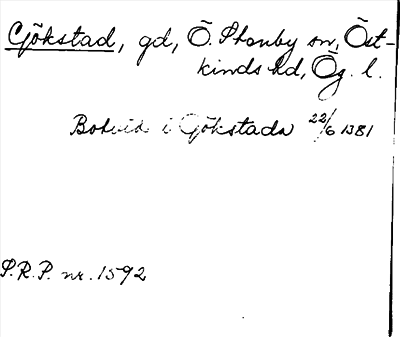 Gökstad, gd, Ö. Stenby sn, Öst-
kinds hd, Ög. l.
Botvid i Gökstada 22/6 1381
S.R.P. nr. 1592